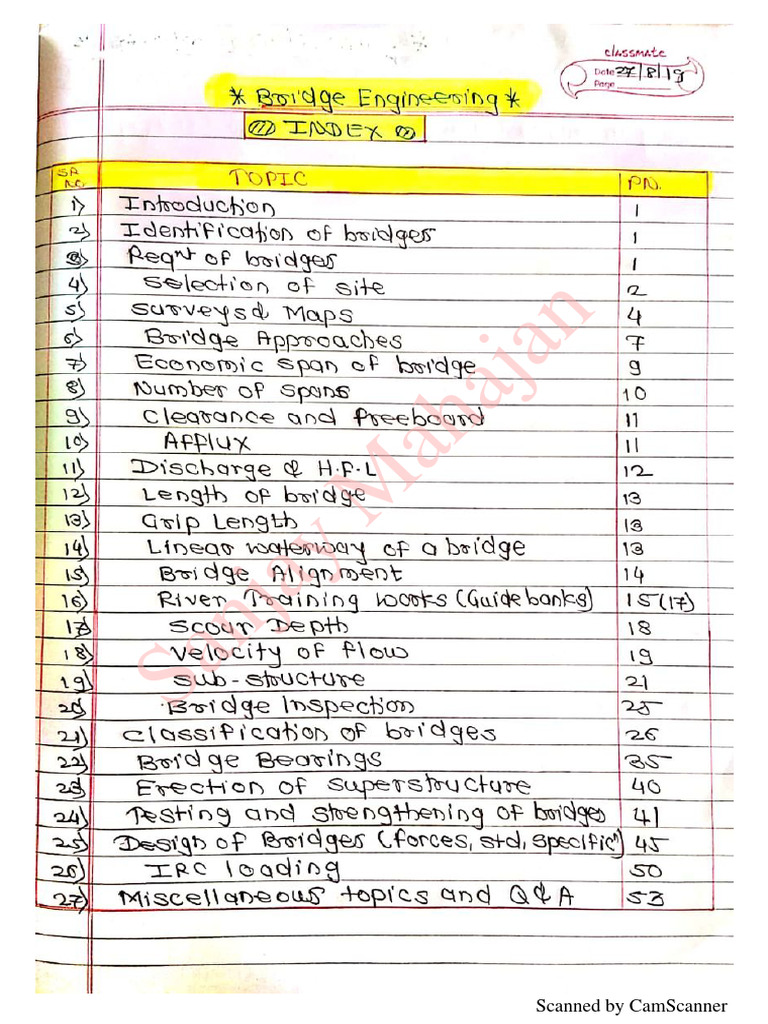 classmate
Date 27/8/19
Page
* Bridge Engineering *
INDEX
SR NO. TOPIC PN.
1) Introduction 1
2) Identification of bridges 1
3) Reqnt of bridges 1
4) Selection of site 2
5) Surveys & Maps 4
6) Bridge Approaches 7
7) Economic span of bridge 9
8) Number of spans 10
9) Clearance and freeboard 11
10) Afflux 11
11) Discharge & H.F.L 12
12) Length of bridge 13
13) Grip Length 13
14) Linear waterway of a bridge 13
15) Bridge Alignment 14
16) River Training works (Guide banks) 15 (17)
17) Scour Depth 18
18) Velocity of flow 19
19) Sub-structure 21
20) Bridge Inspection 25
21) Classification of bridges 26
22) Bridge Bearings 35
23) Erection of superstructure 40
24) Testing and strengthening of bridges 41
25) Design of Bridges (forces, std, specificn) 45
26) IRC loading 50
27) Miscellaneous topics and Q & A 53
Sanjay Mahajan
Scanned by CamScanner